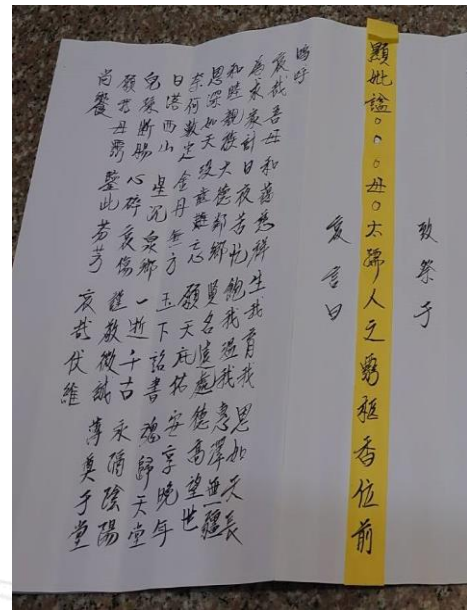 致祭于
顯妣謚。。。母。太孺人之靈柩香位前
哀言曰
嗚呼
哀我吾母 和藹慈祥 生我育我 恩如天長
為家計 日夜苦忙 飽我溫我 惠澤無疆
和睦親族 大德鄰鄉 賢名遠 德高望世
恩深如天 沒齒難忘 願天庇佑 安享晚年
奈何數定 金丹無方 玉下詔書 魂歸天堂
日落西山 星沉泉鄉 一逝千古 永隔陰陽
兒孫斷腸 心碎哀傷 謹敬微誠 薄奠于堂
願吾母靈 鑒此芬芳 哀哉伏維
尚饗